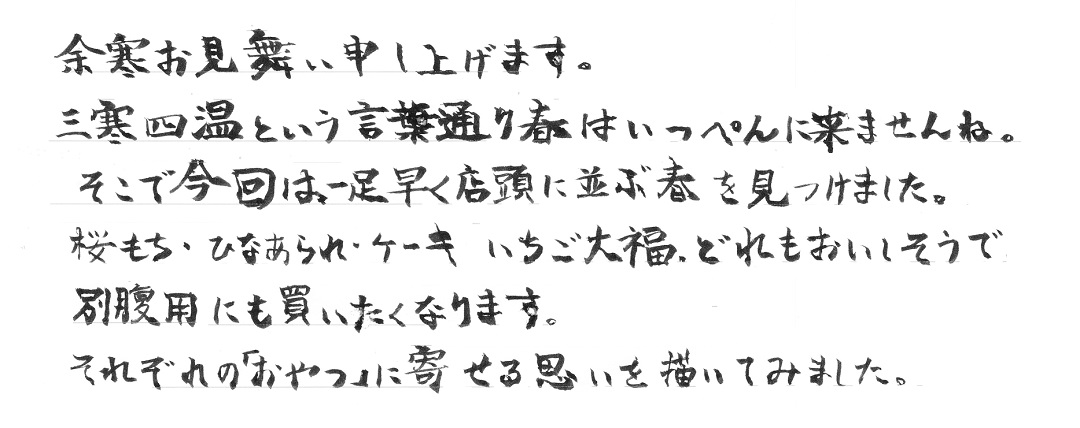 余寒お見舞い申し上げます。
三寒四温という言葉通り春はいっぺんに来ませんね。
そこで今回は、一足早く店頭に並ぶ春を見つけました。
桜もち・ひなあられ・ケーキ いちご大福、どれもおいしそうで
別腹用にも買いたくなります。
それぞれの「おやつ」に寄せる思いを描いてみました。